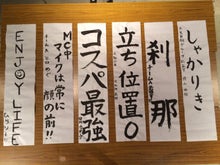 しゃかりき
刹那
立ち位置0
コスパ最強
MC中
マイクは常に
顔の前!!
ENJOY LIFE